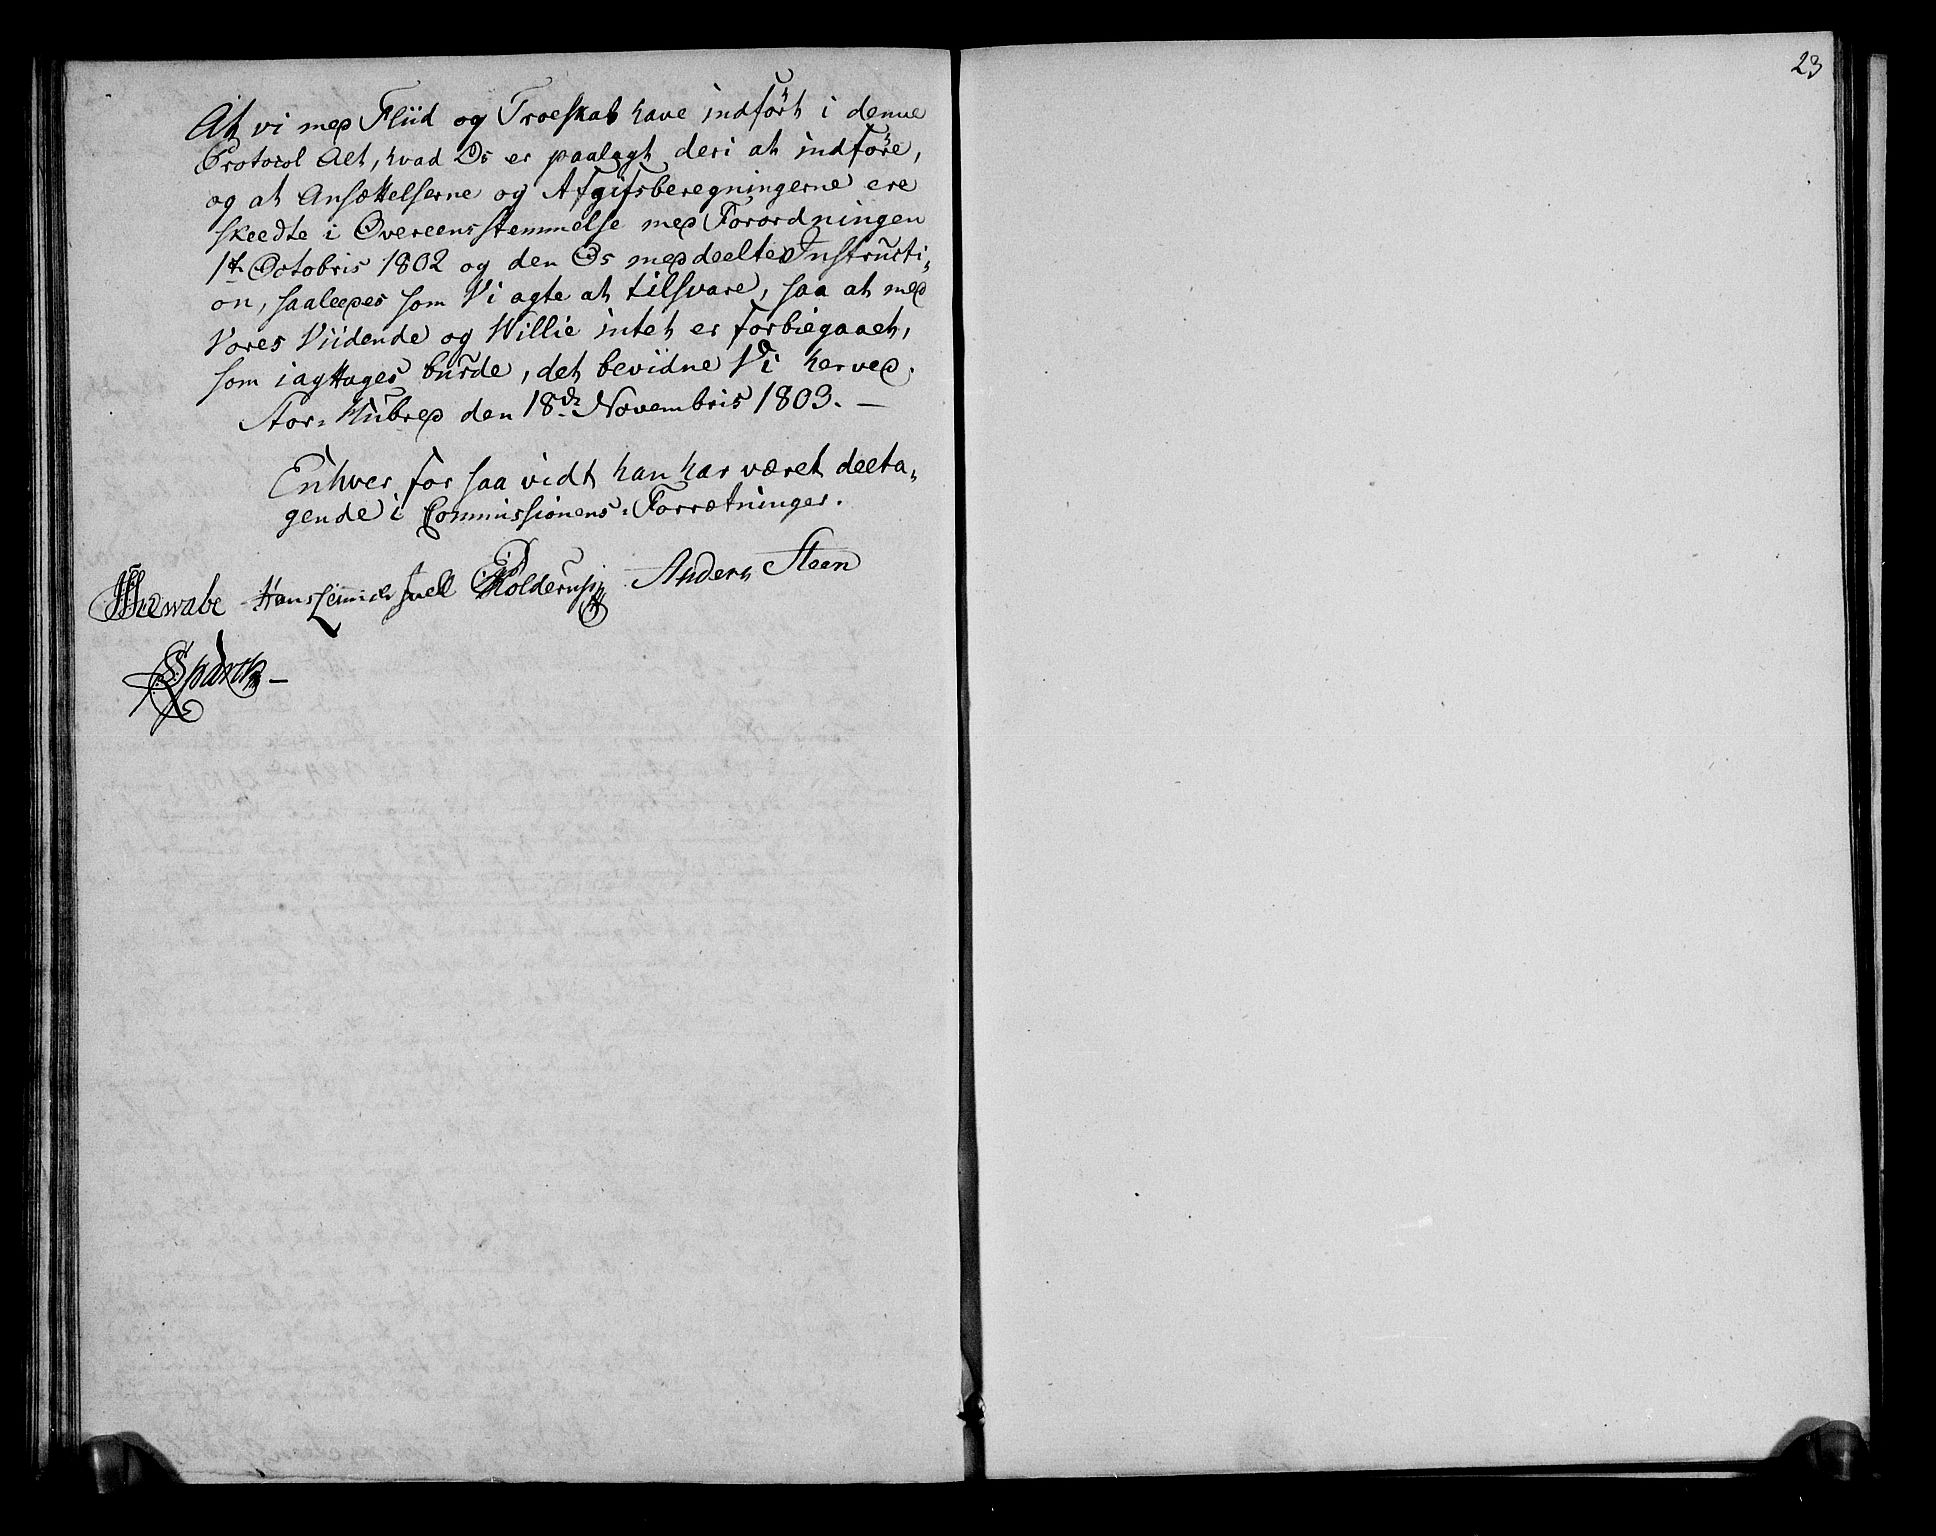 23
At vi med Fliid og Troeskab have indført i denne
Protocol Alt, hvad Os er paalagt deri at indføre,
og at Ansættelserne og Afgifsberegningerne ere
skeedte i Overeensstemmelse med Forordningen
1te Octobris 1802 og den Os meddeelte Instructi-
on, saaledes som Vi agte at tilsvare, saa at med
Vores Viidende og Willie intet er forbiegaaet,
som iagttages burde, det bevidne Vi herved.
Stor-Hubred den 18de Novembris 1803. —
Enhver for saa vidt han har været deelta-
gende i Commissionens-Forretninger.
Hans Heinrich Juell Holderup Anders Steen